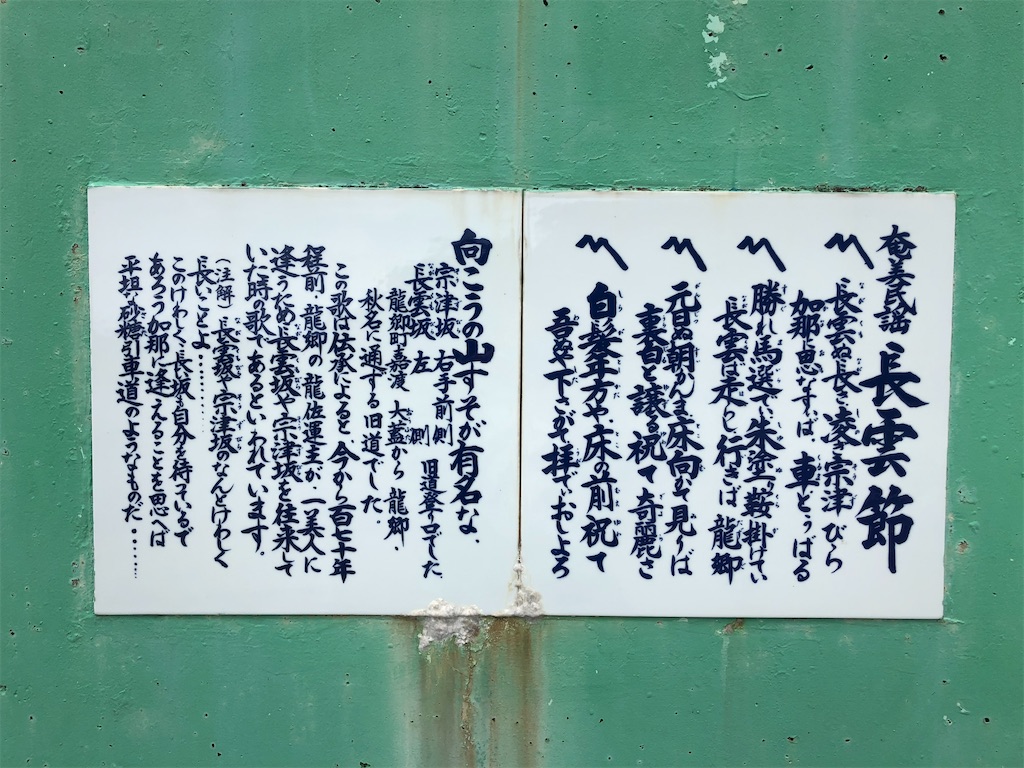 奄美民謡 長雲節
〽 長雲ぬ長さ 凌さ宗津びら
加那に思なすば 車どぅばる
〽 勝れ馬選でぃ 朱塗鞍掛けてぃ
長雲は走らし 行きば 龍郷
〽 元日の朝かんま 床向かて 見りば
裏白と譲る 祝て 奇麗さ
〽 白髪年方や 床の前 祝て
吾ぬや下さがて 拝でぃおしょろ
向こうの山すそが有名な、
宗津坂 右手前側 旧道登り口でした
長雲坂 左側
龍郷町嘉渡 大藍から 龍郷・
秋名に通ずる旧道でした.
この歌は伝承によると、今から百七十年
程前・龍郷の龍佐運主が、一美人に
逢うため長雲坂や宗津坂を往来して
いた時の歌であるといわれています。
(注解) 長雲坂や宗津坂のなんとけわしく
長いことよ………
このけわしく長い坂も自分を待っているで
あろう加那に逢えることを思へば
平坦な砂糖引車道のようなものだ………